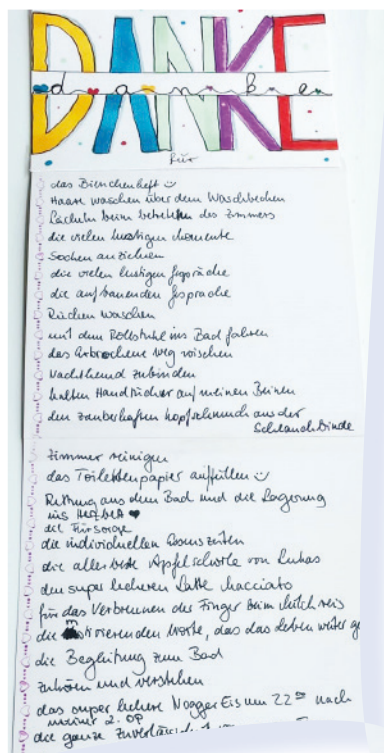 DANKE
danke
für
das Bienchenheft
Haare waschen über dem Waschbecken
Lächeln beim betreten des Zimmers
die vielen lustigen Momente
Socken anziehen
die vielen lustigen Gespräche
die aufbauenden Gespräche
Rücken waschen
mit dem Rollstuhl ins Bad fahren
das Erbrochene weg wischen
Nachthemd zubinden
kalten Handtücher auf meinen Beinen
den zauberhaften Kopfschmuck aus der
Schlauchbinde
Zimmer reinigen
das Toilettenpapier auffüllen
Rettung aus dem Bad und die Lagerung
ins Herzbett
die Fürsorge
die individuellen Essenszeiten
die aller beste Apfelschorle von Lukas
den super leckeren Latte Macciato
für das Verbrennen der Finger beim Milchreis
die motivierenden Worte, das das Leben weiter ge
die Begleitung zum Bad
zuhören und verstehen
das super leckere Nogger Eis um 22⁰⁰ nach
meiner 2. OP
die ganze